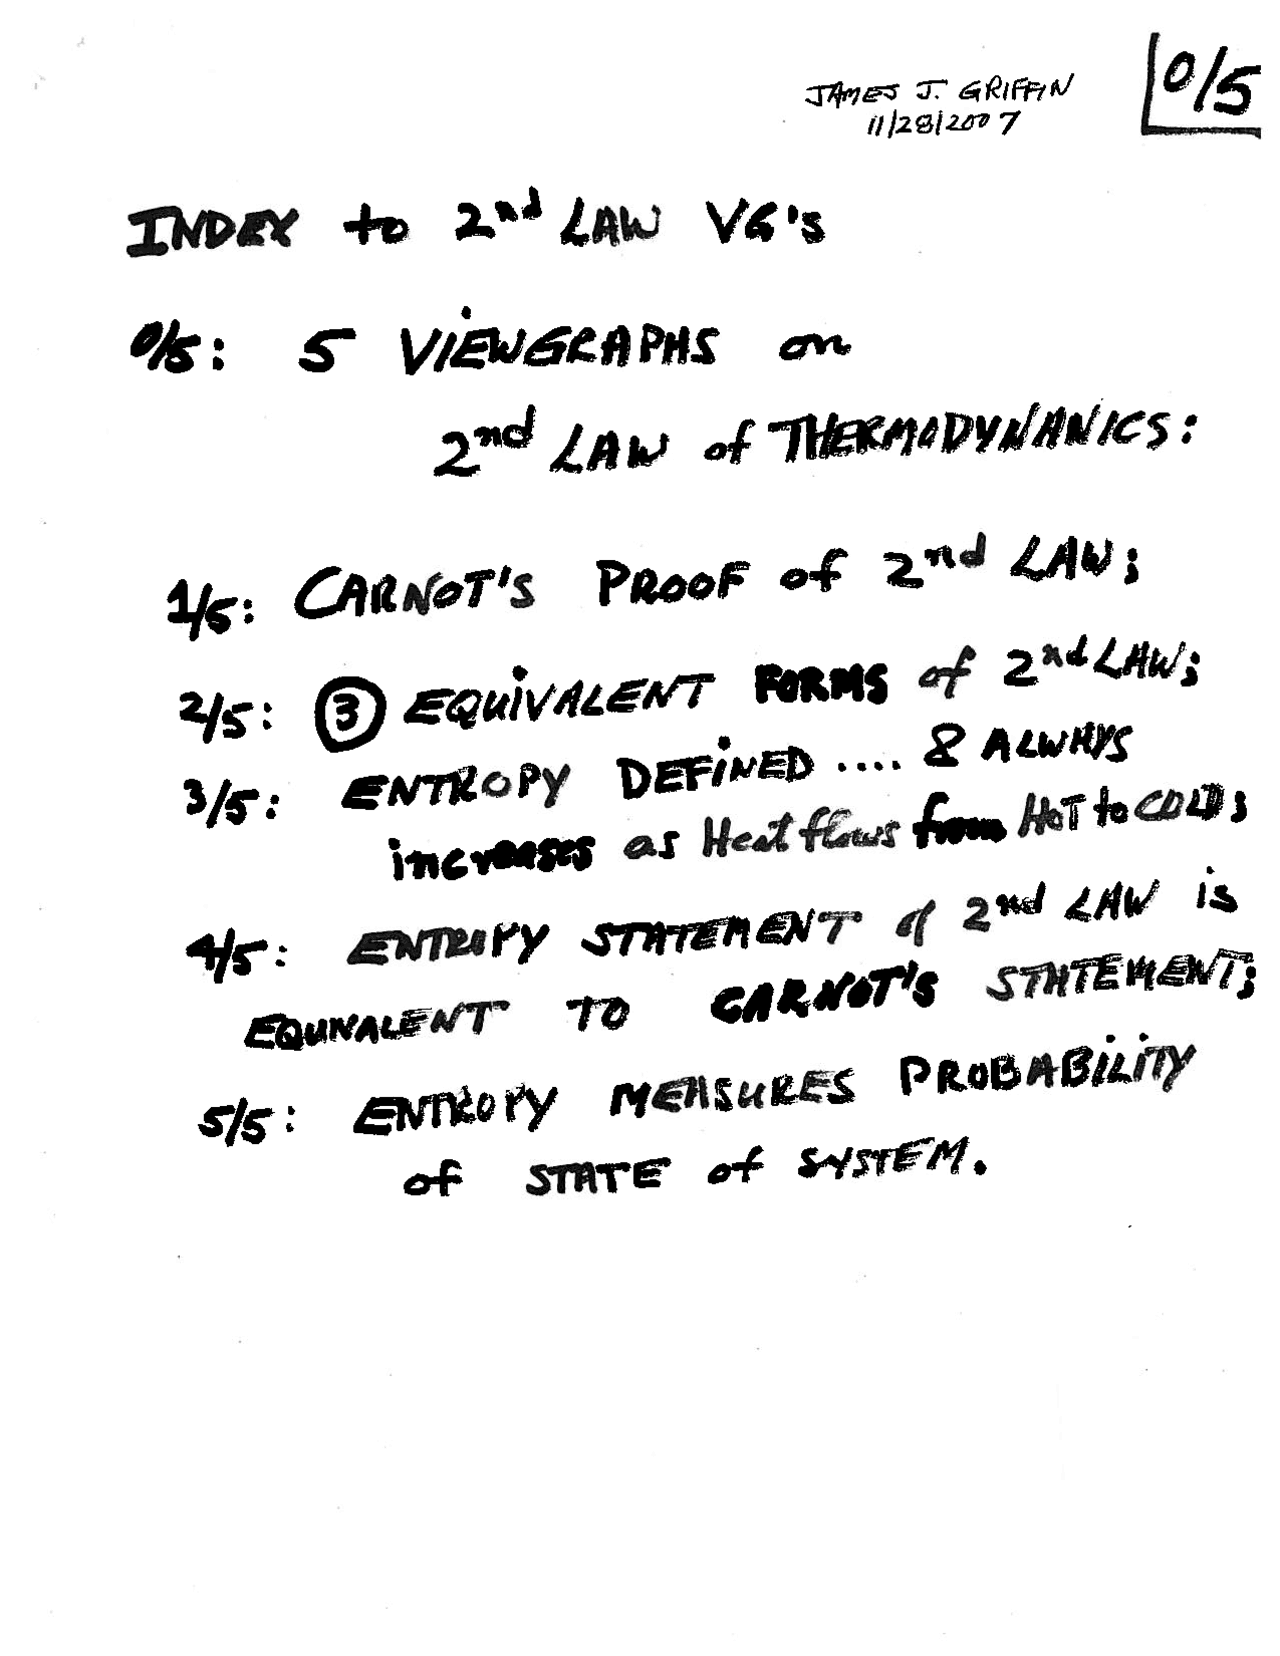 JAMES J. GRIFFIN
11/28/2007
0/5
INDEX to 2nd LAW VG's
0/5: 5 VIEWGRAPHS on
2nd LAW of THERMODYNAMICS:
1/5: CARNOT'S PROOF of 2nd LAW;
2/5: ③ EQUIVALENT FORMS of 2nd LAW;
3/5: ENTROPY DEFINED .... & ALWAYS
increases as Heat flows from HOT to COLD;
4/5: ENTROPY STATEMENT of 2nd LAW is
EQUIVALENT TO CARNOT'S STATEMENT;
5/5: ENTROPY MEASURES PROBABILITY
of STATE of SYSTEM.